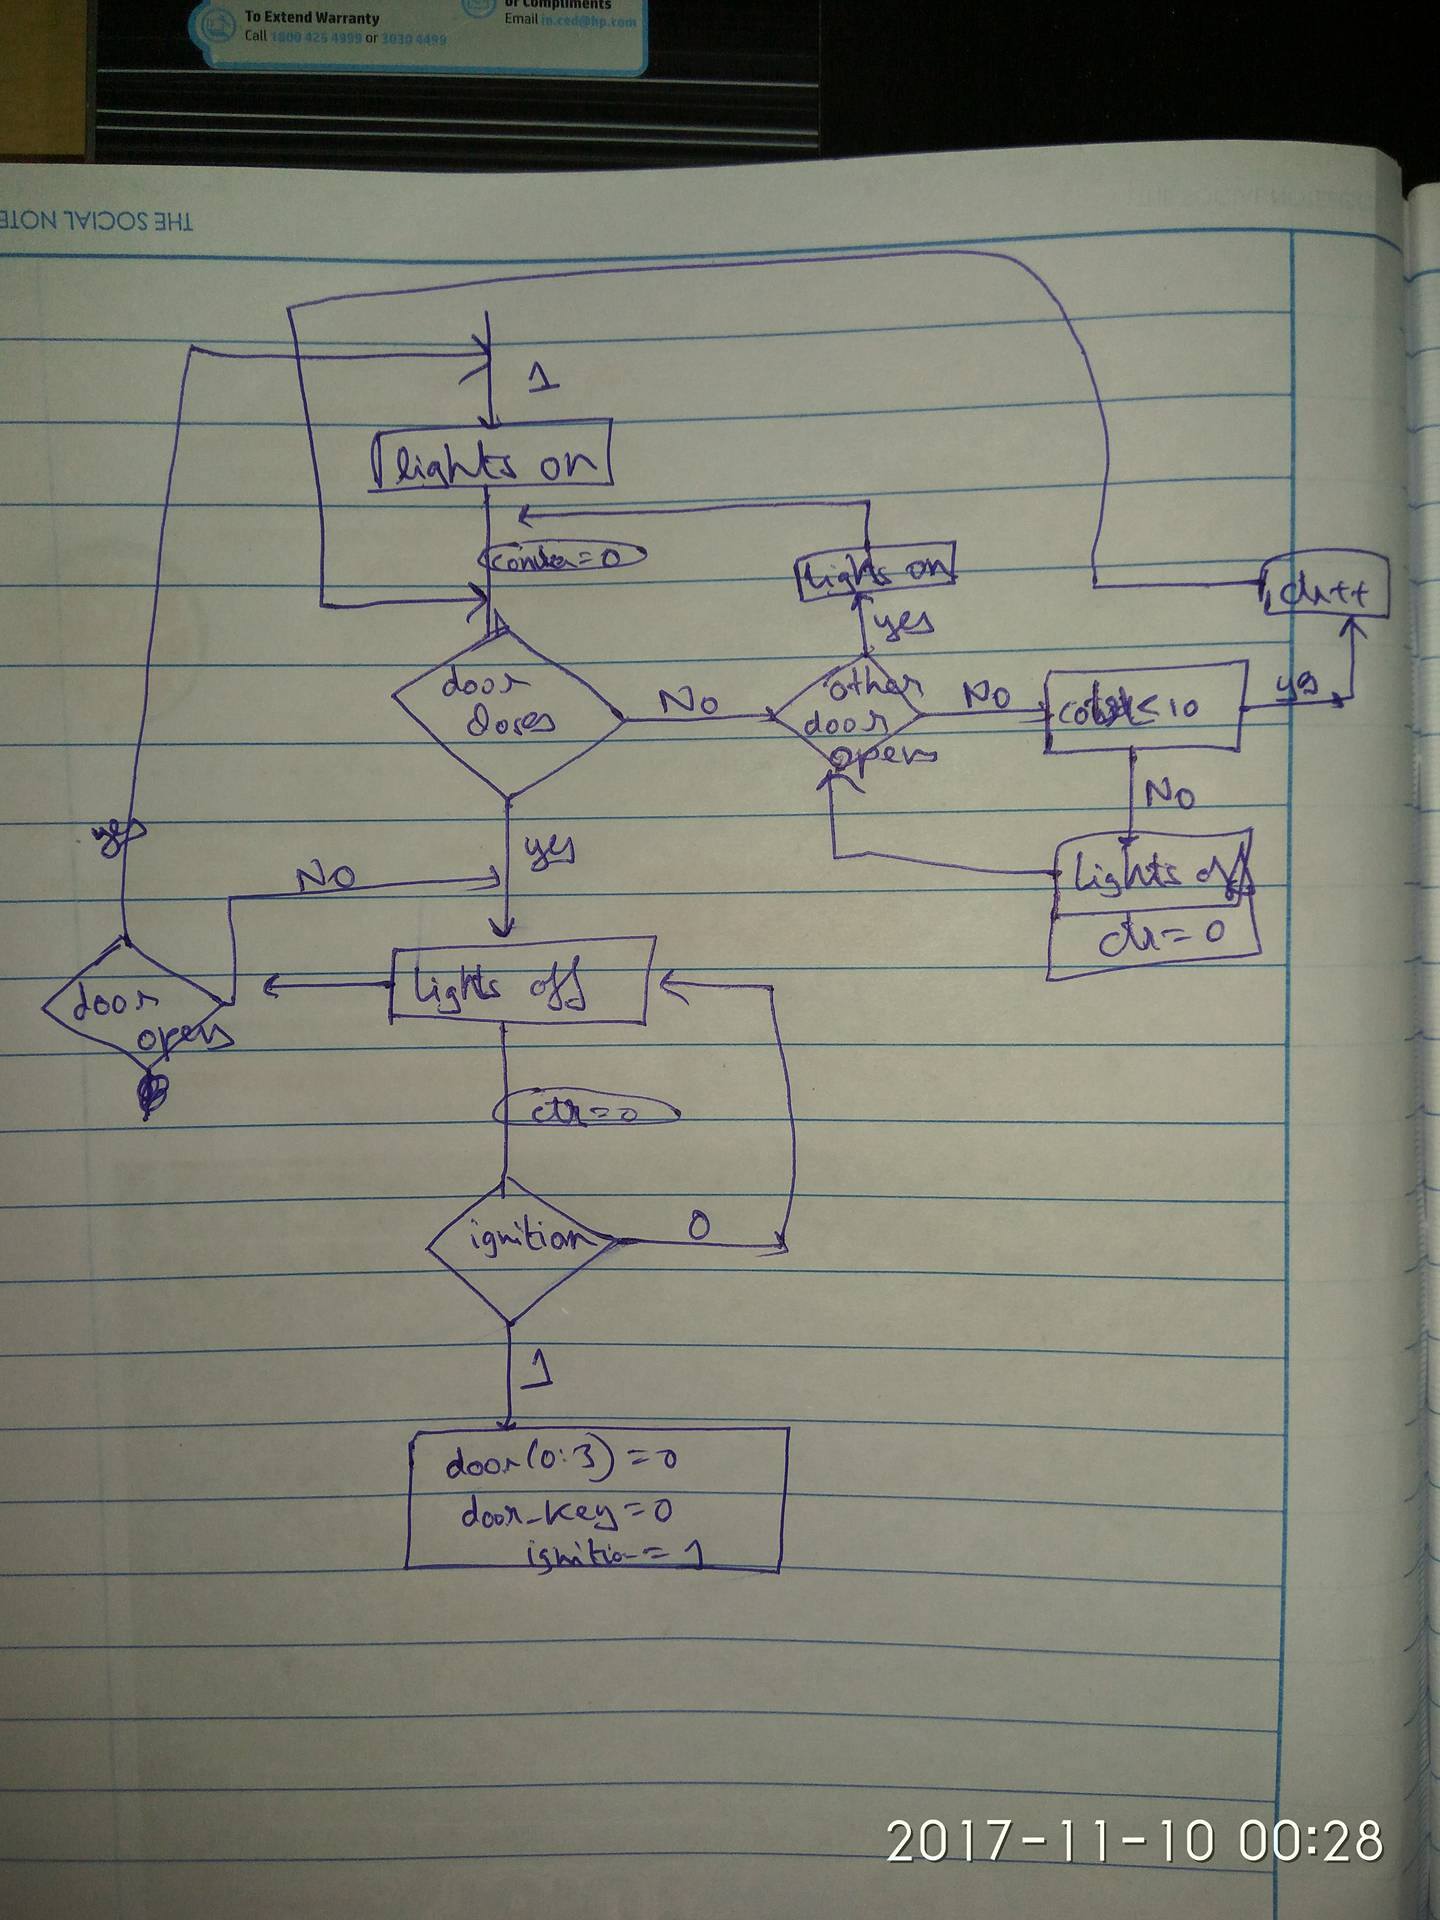 To Extend Warranty
Call 1800 425 4999 or 3030 4499
or Compliments
Email in.ced@hp.com
THE SOCIAL NOTE
1
lights on
lights on
ctr++
yes
door
closes
No
other
door
opens
No
< 10
yes
No
yes
yes
No
lights off
ctr = 0
door
opens
lights off
ctr = 0
ignition
0
1
door(0:3) = 0
door_key = 0
ignition = 1
2017-11-10 00:28